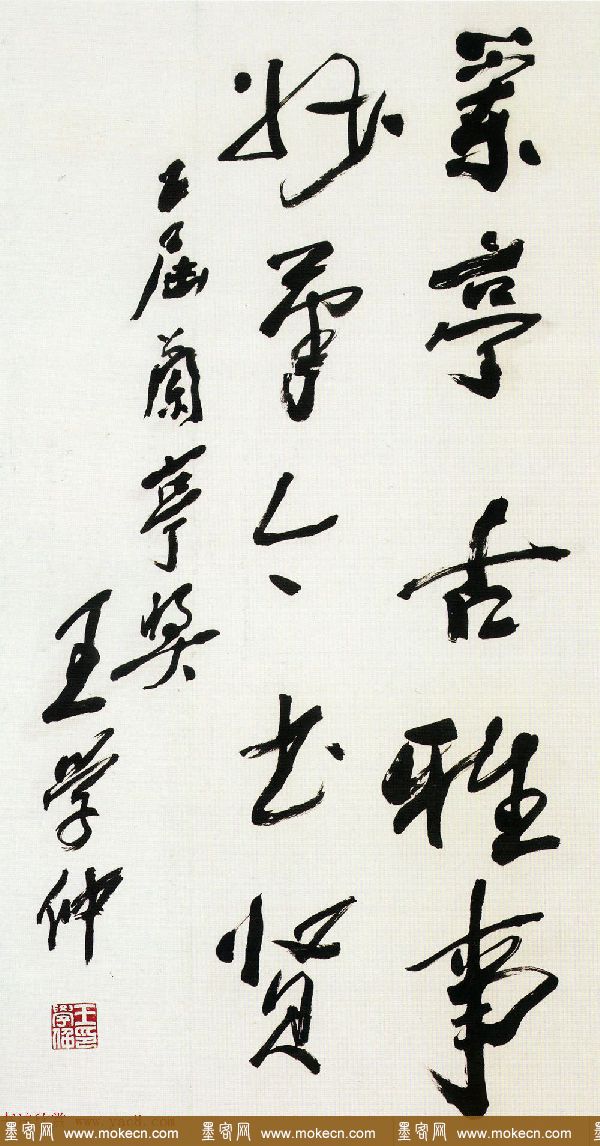 蘭亭古雅事
筆今书贤
届蘭亭奖
王学仲
王學仲印
墨客网 www.mokecn.com 墨客网 www.mokecn.com 墨客网 www.mokecn.com